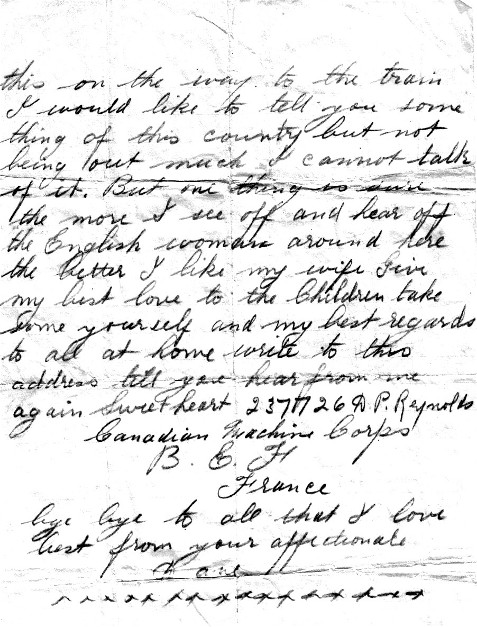 this on the way to the train
I would like to tell you some
thing of this country but not
being out much I cannot talk
of it. But one thing is sure
the more I see off and hear off
the English woman around here
the better I like my wife Give
my best love to the Children take
some yourself and my best regards
to all at home write to this
address till you hear from me
again Sweetheart 2371726 D. P. Reynolds
Canadian Machine Corps
B. E. F
France
bye bye to all that I love
best from your affectionate
x x x x x x x x x x x x x x x x x